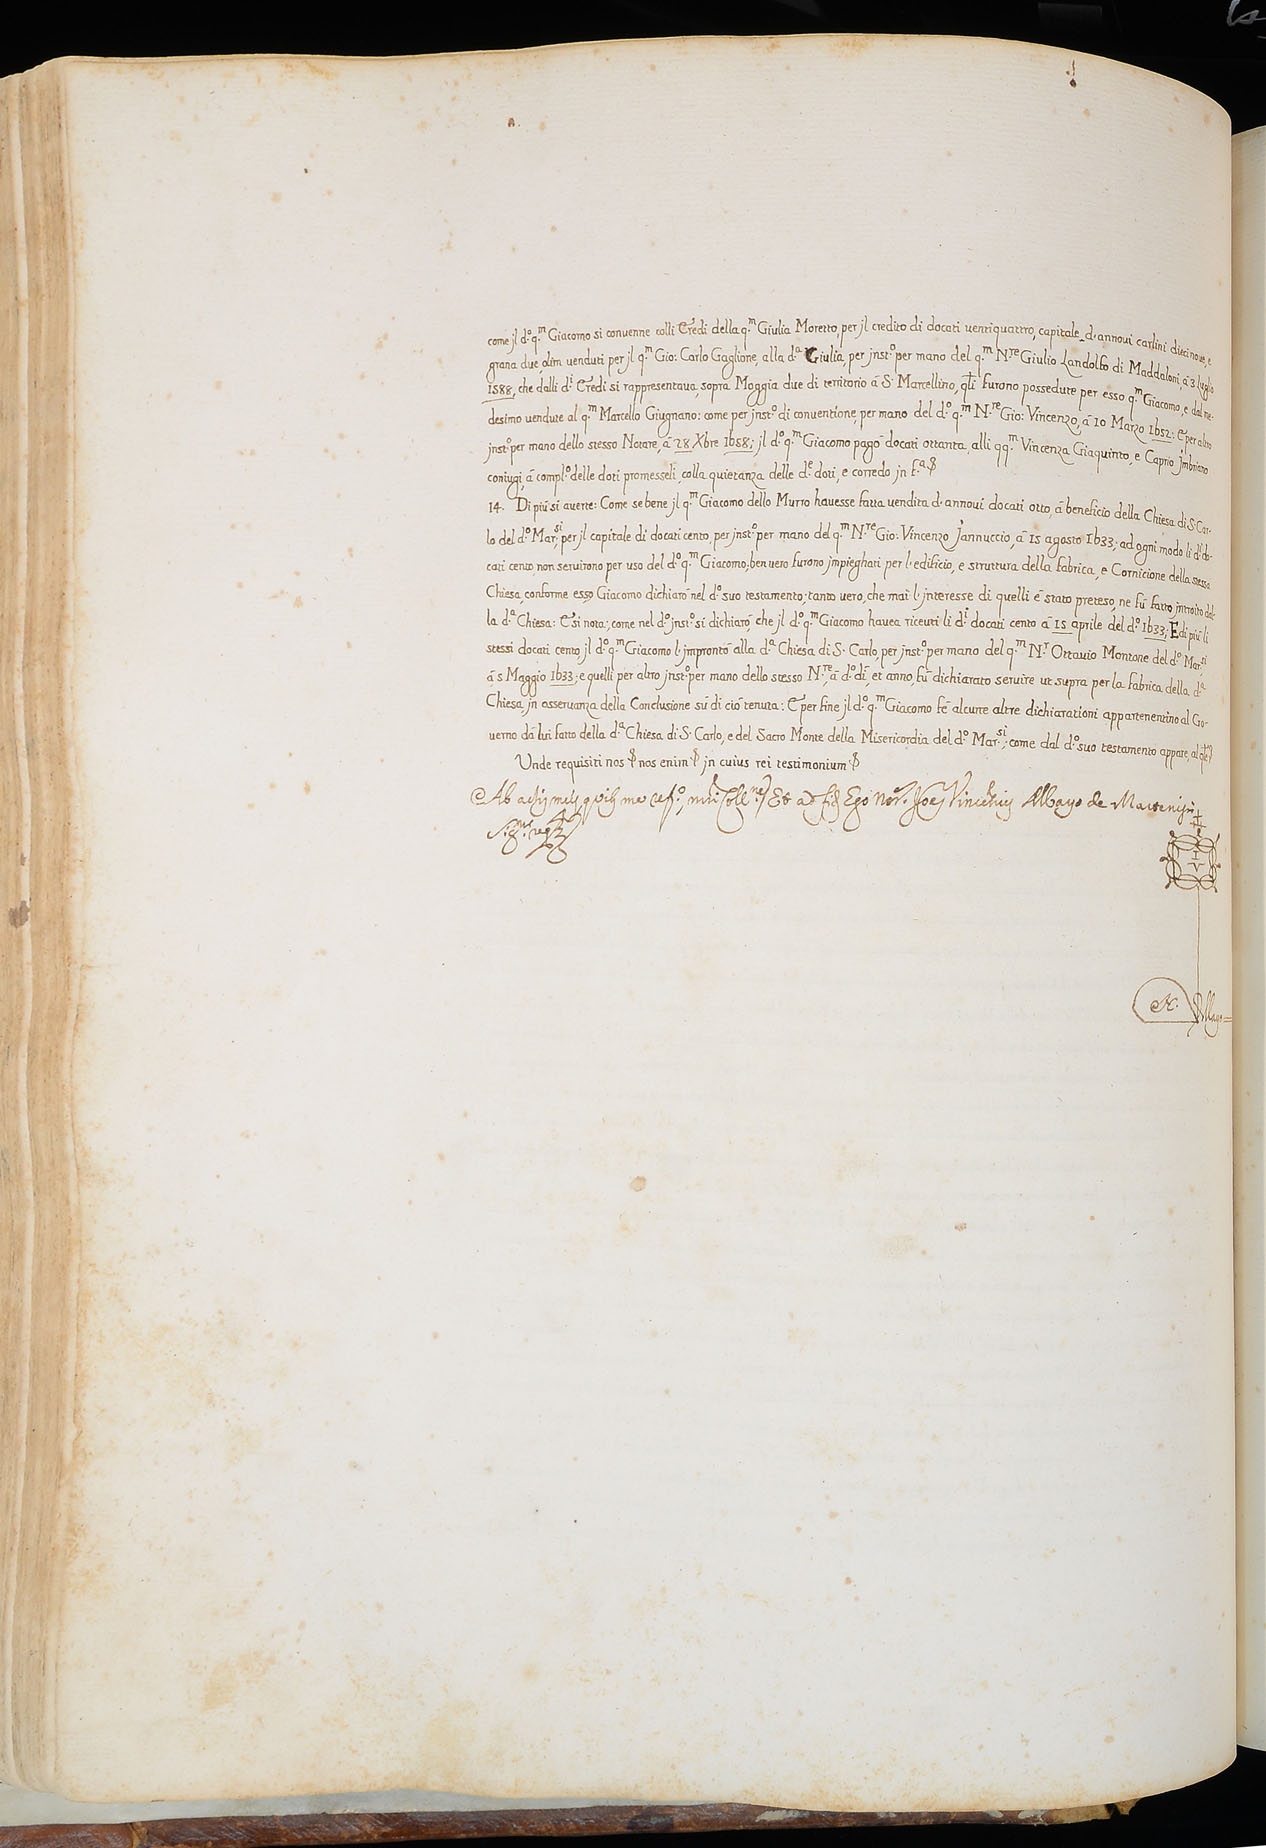 come jl d.º q.m Giacomo si conuenne colli Eredi della q.m Giulia Moretto, per jl credito di docati uentiquattro, capitale d'annoui carlini diecinoue, e
grana due, olim uenduti per jl q.m Gio: Carlo Gaglione, alla d.a Giulia, per jnst.º per mano del q.m N.re Giulio Landolfo di Maddaloni, à 3 luglio
1588, che dalli d.i Eredi si rappresentaua, sopra Moggia due di territorio à S. Marcellino, qli furono possedute per esso q.m Giacomo, e dal me-
desimo vendute al q.m Marcello Giugnano: come per jnst.º di conuentione, per mano del d.º q.m N.re Gio: Vincenzo, à 10 Marzo 1652: E per altro
jnst.º per mano dello stesso Notare, à 28 Xbre 1658; jl d.º q.m Giacomo pagò docati ottanta, alli qq.m Vincenza Giaquinto, e Caprio Jmbriano
coniugi, à compl.º delle doti promesseli, colla quietanza delle d.e doti, e corredo jn f.a
14. Di più si auerte: Come se bene jl q.m Giacomo dello Murro hauesse fatta vendita d'annoui docati otto, à beneficio della Chiesa di S. Car-
lo del d.º Mar.si, per jl capitale di docati cento, per jnst.º per mano del q.m N.re Gio: Vincenzo Jannuccio, à 15 agosto 1633; ad ogni modo li d.i do-
cati cento, non seruirono per uso del d.º q.m Giacomo, ben uero furono jmpieghati per l'edificio, e struttura della fabrica, e Cornicione della stessa
Chiesa, conforme esso Giacomo dichiarò nel d.º suo testamento; tanto uero, che mai l'jnteresse di quelli è stato preteso, ne fù fatto jntroito dal-
la d.a Chiesa: E si nota, come nel d.º jnst.º si dichiarò, che jl d.º q.m Giacomo hauea riceuti li d.i docati cento à 15 aprile del d.º 1633; E di più li
stessi docati cento, jl d.º q.m Giacomo l'jmprontò alla d.a Chiesa di S. Carlo, per jnst.º per mano del q.m N.r Ottauio Montone del d.º Mar.si
à 5 Maggio 1633; e quelli per altro jnst.º per mano dello stesso N.re, à d.º dì, et anno, fù dichiarato seruire ut supra per la fabrica della d.a
Chiesa, jn asseruanza della Conclusione sù di ciò tenuta: E per fine jl d.º q.m Giacomo fè alcune altre dichiarationi appartenentino al Go-
uerno da lui fatto della d.a Chiesa di S. Carlo, e del Sacro Monte della Misericordia del d.º Mar.si; come dal d.º suo testamento appare, al qle
Unde requisiti nos nos enim jn cuius rei testimonium
Ab actis meis Et ad fid. Ego Not. Joes Vincentius Albayo de Martenisio